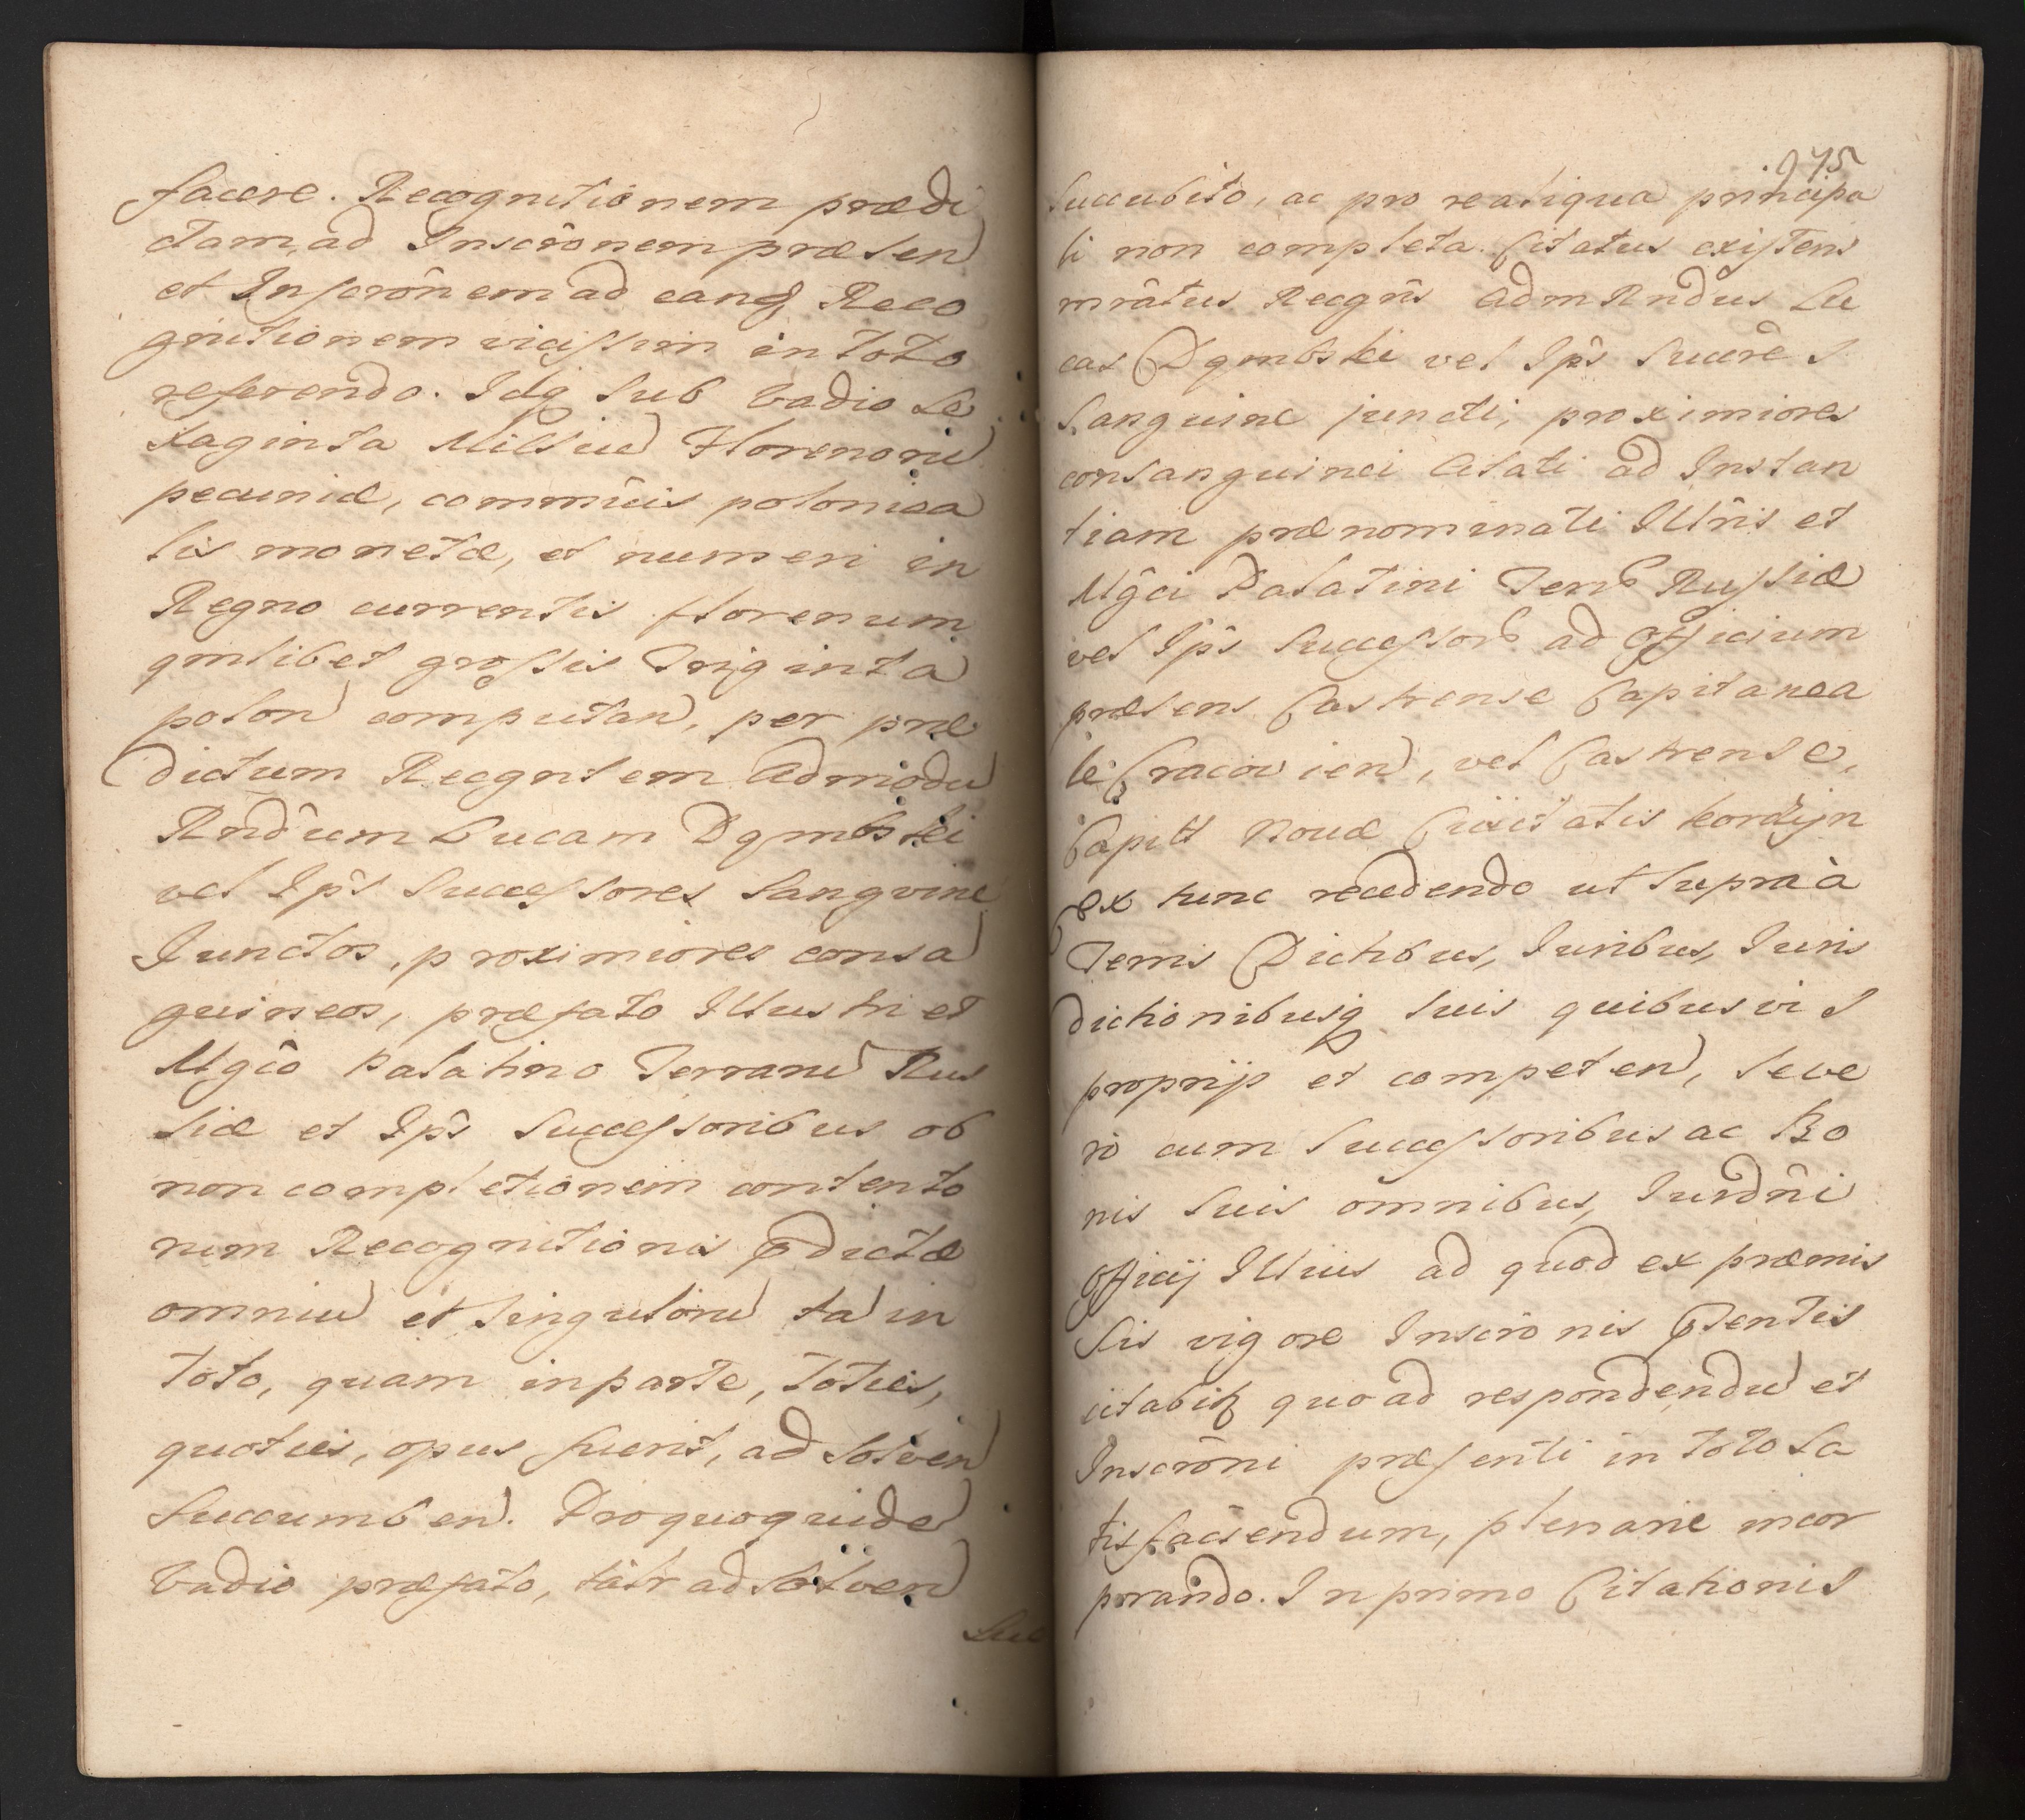 facere. Recognitionem prædi
ctam, ad Inscrônem præsen
et Inscrônem ad eanq Reco
gnitionem vicissim in toto
referendo. Idq sub Vadio Se
xaginta Milliu Florenoru
pecuniæ, commûis polonica
lis monetæ, et numeri in
Regno currentis florenum
qmlibet grossis Triginta
polon computan, per præ
dictum Recgntem Admodu
Rndûm Lucam Dąmbski
vel Ips Successores Sangvine
Junctos, proximiores consa
guineos, præfato Illustri et
Mgcô Palatino Terraru Rus
siæ et Ips Successoribus ob
non completionem contento
rum Recognitionis pdictæ
omniu et singuloru ta in
toto, quam in parte, toties,
quoties, opus fuerit, ad solven
Succumben. Pro quo quide
Vadio præfato, talr ad solven
Suc
175
Succubito, ac pro re aliqua principa
li non completa. Citatus existens
mrâtus Recgns Adm Rndus Lu
cas Dąmbski vel Ips Succrê s
Sanguine juncti, proximiores
consanguinei Citati ad Instan
tiam prænominati Illris et
Mgci Palatini Terr Russiæ
vel Ips Successor ad Officium
præsens Castrense Capitanea
le Cracovien, vel Castrense,
Capitt Novæ Civitatis Korczyn
Ex tunc recedendo ut supra à
Terris Districtibus, Juribus, Juris
dictionibusq suis quibusvis
proprijs et competen, seve
rò cum Successoribus ac Bo
nis Suis omnibus, Jurdni
Officij Illius ad quod ex præmis
sis vigore Inscrônis pntis
citabitr quo ad respondendu et
Inscrôni præsenti in toto Sa
tisfaciendum, plenarie incor
porando. In primo Citationis